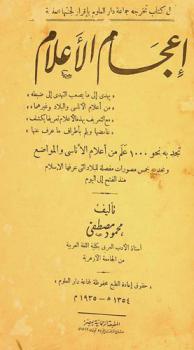 في كتاب تخرجه جماعة دار العلوم بإقرار لجنتها
إعجام الأعلام
يهدى إلى ما يصعب التهدى إلى ضبطه
من أعلام الأناسى والبلاد وغيرهما
مع التعريف بهذه الأعلام تعريفا يكشف
غامضها ويلم بأطراف ما عرف عنها
تجد به نحو ١٠٠٠ علم من أعلام الأناسى والمواضع
وتجد به خمس مصورات مفصلة للبلاد التى عرفها الإسلام
منذ الفتح إلى اليوم
تأليف
محمود مصطفى
أستاذ الأدب العربى بكلية اللغة العربية
من الجامعة الأزهرية
حقوق إعادة الطبع محفوظة لجماعة دار العلوم
١٣٥٤ هـ - ١٩٣٥ م
المطبعة الرحمانية بمصر